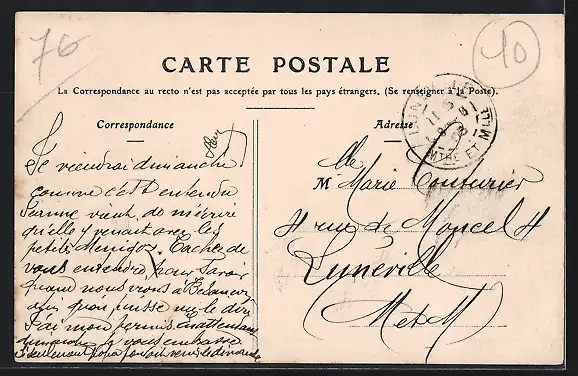 76
10
CARTE POSTALE
La Correspondance au recto n'est pas acceptée par tous les pays étrangers. (Se renseigner à la Poste).
Correspondance
Adresse
Je viendrai dimanche
comme c'est entendu
Jeanne vient de m'écrire
qu'elle y venait avec les
petits Tachez de
vous entendre pour savoir
quand nous irons à
afin qu'on puisse me le dire
J'ai mon permis
dimanche je vous embrasse
Seulement papa
M lle Marie Couturier
4 rue de Moncel 4
Lunéville
(M et M)
MTHE ET M